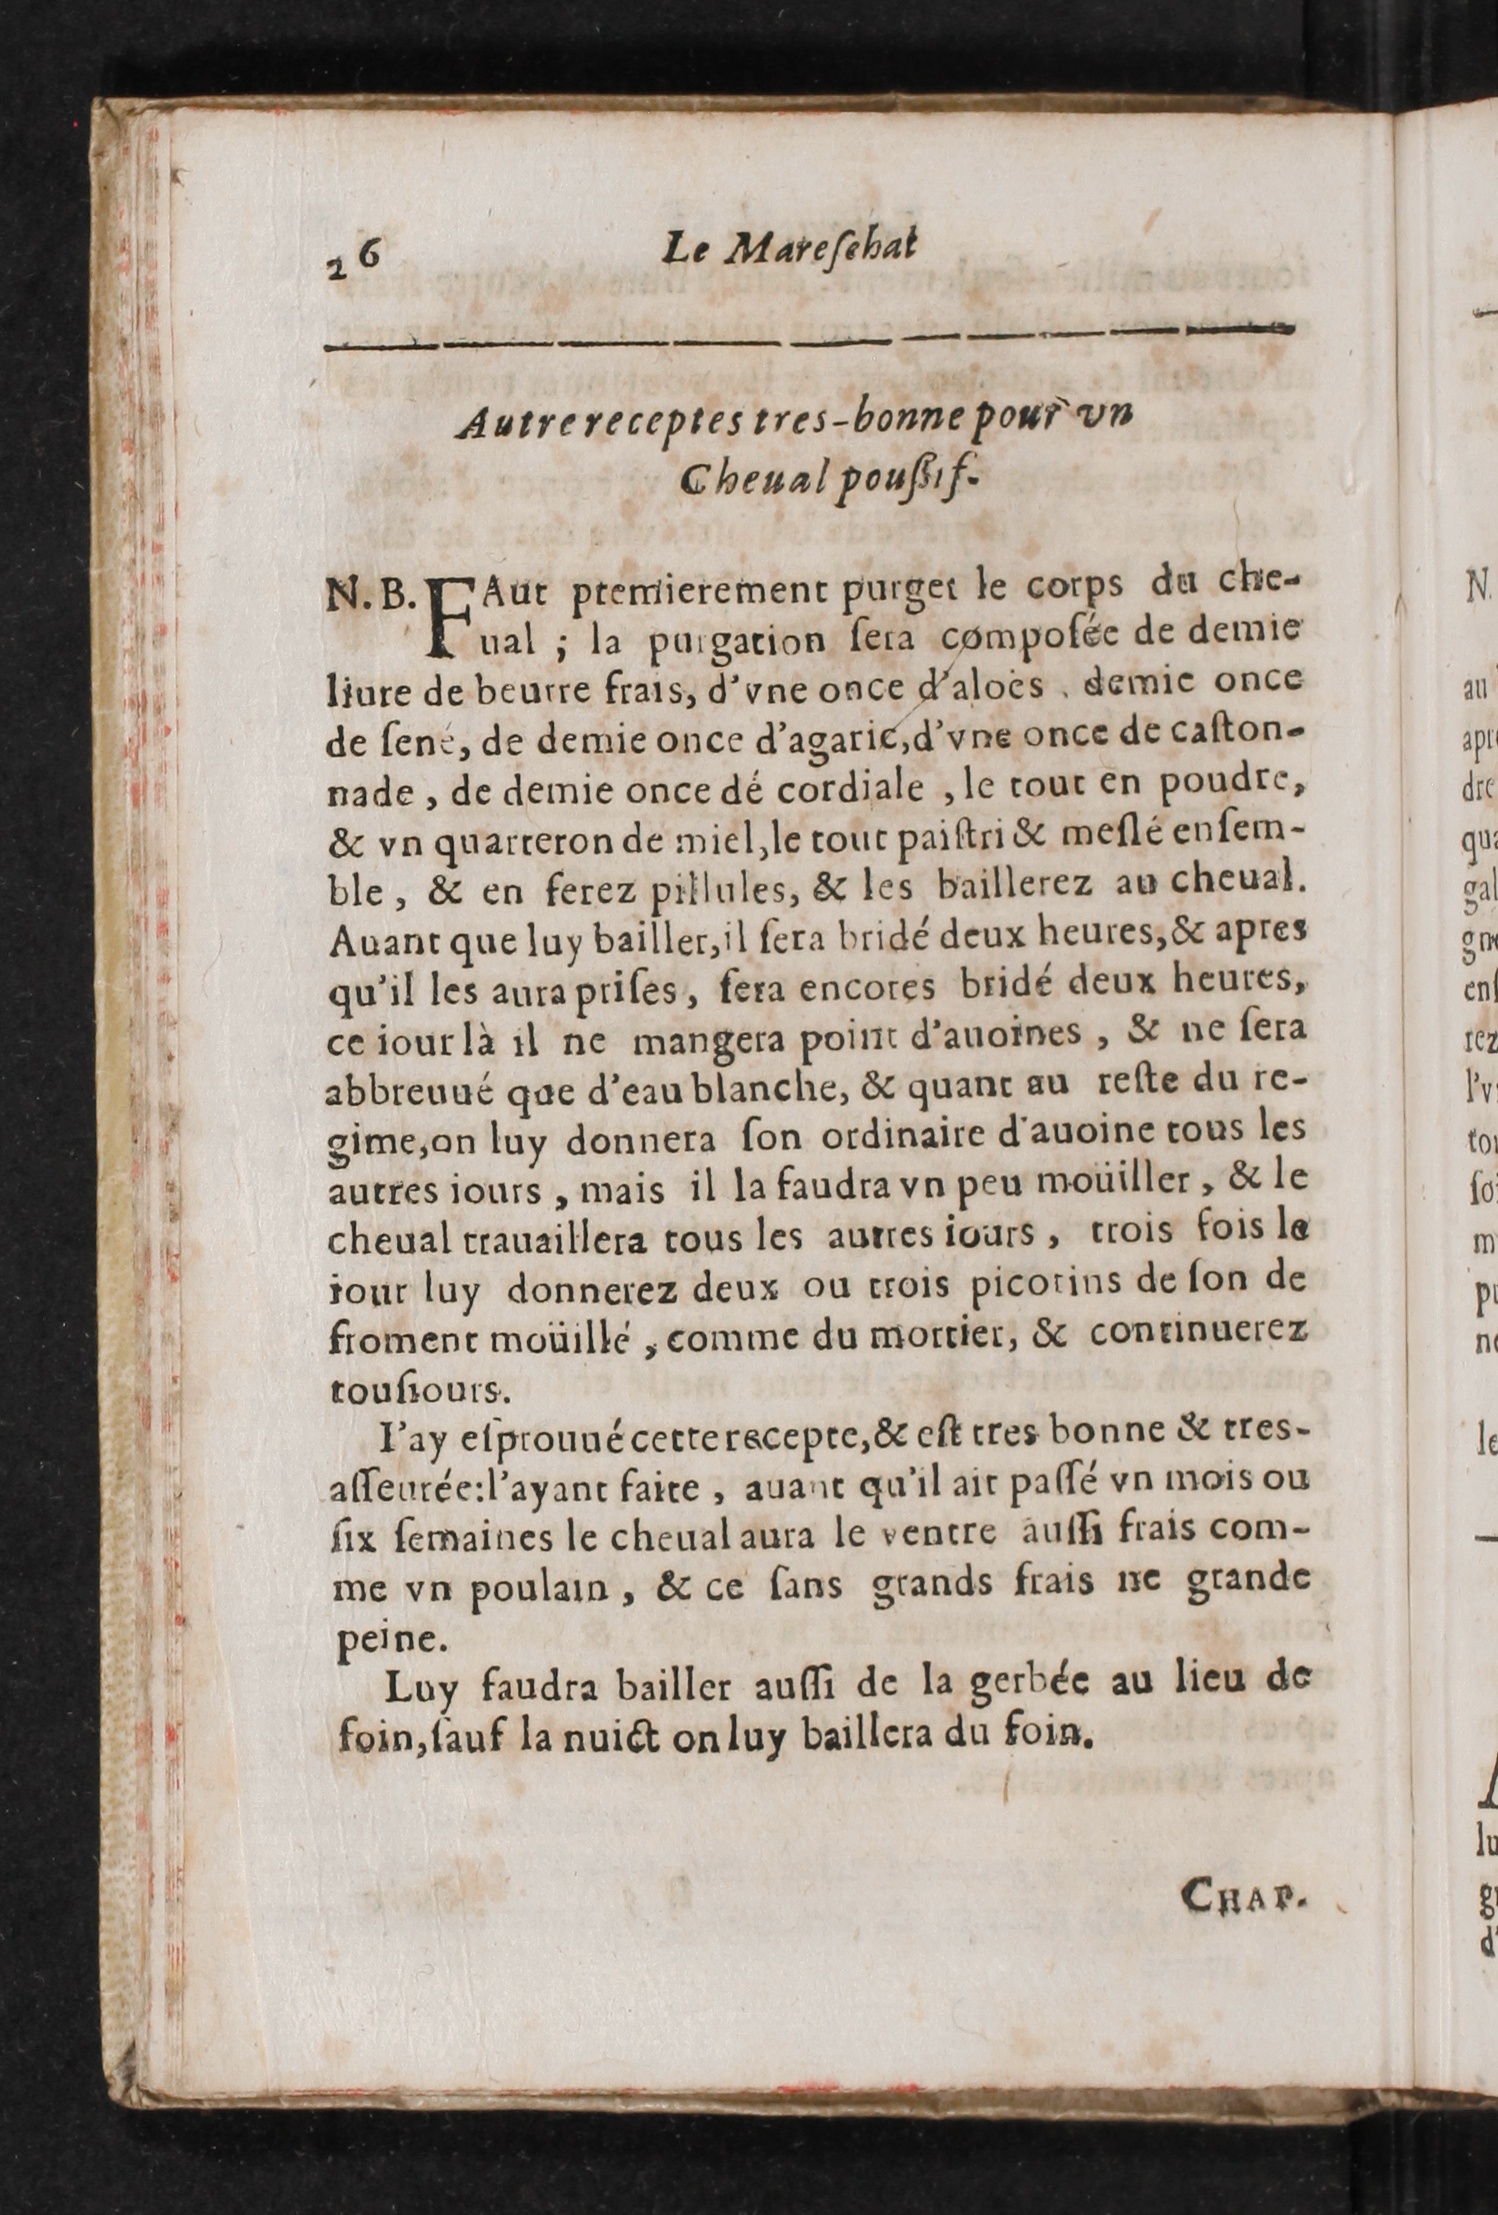 26 Le Mareſchal
Autre receptes tres-bonne pour vn
Cheual pouſsif.
N. B. FAut premierement purger le corps du che-
ual ; la purgation ſera compoſée de demie
liure de beurre frais, d'vne once d'aloès, demie once
de ſené, de demie once d'agaric, d'vne once de caſton-
nade, de demie once dé cordiale, le tout en poudre,
& vn quarteron de miel, le tout paiſtri & meſlé enſem-
ble, & en ferez pillules, & les baillerez au cheual.
Auant que luy bailler, il ſera bridé deux heures, & apres
qu'il les aura priſes, ſera encores bridé deux heures,
ce iour là il ne mangera point d'auoines, & ne ſera
abbreuué que d'eau blanche, & quant au reſte du re-
gime, on luy donnera ſon ordinaire d'auoine tous les
autres iours, mais il la faudra vn peu moüiller, & le
cheual trauaillera tous les autres iours, trois fois le
iour luy donnerez deux ou trois picotins de ſon de
froment moüillé, comme du mortier, & continuerez
touſiours.
I'ay eſprouué cette recepte, & eſt tres bonne & tres-
aſſeurée: l'ayant faite, auant qu'il ait paſſé vn mois ou
ſix ſemaines le cheual aura le ventre auſſi frais com-
me vn poulain, & ce ſans grands frais ne grande
peine.
Luy faudra bailler auſſi de la gerbée au lieu de
foin, ſauf la nuict on luy baillera du foin.
CHAP.